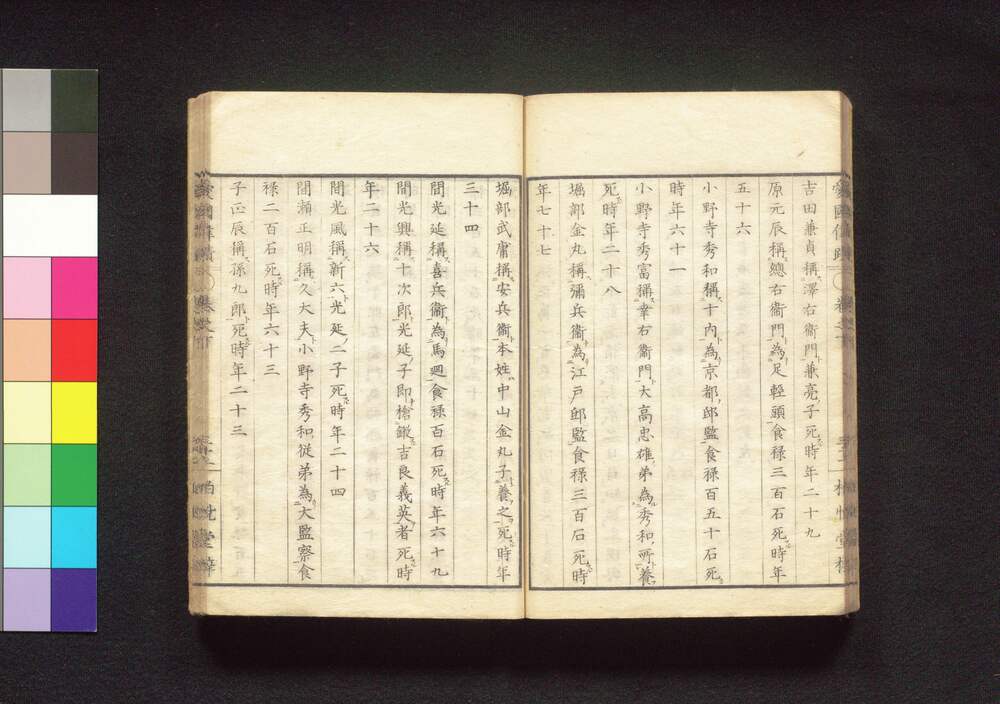 吉田兼貞稱澤右衞門兼亮子死時年二十九
原元辰稱總右衞門為足輕頭食祿三百石死時年
五十六
小野寺秀和稱十内為京都邸監食祿百五十石死
時年六十一
小野寺秀富稱幸右衞門大高忠雄弟為秀和所養
死時年二十八
堀部金丸稱彌兵衞為江戸邸監食祿三百石死時
年七十七
堀部武庸稱安兵衞本姓中山金丸子養之死時年
三十四
間光延稱喜兵衞為馬廻食祿百石死時年六十九
間光興稱十次郎光延子即槍鏦吉良義英者死時
年二十六
間光風稱新六光延二子死時年二十四
間瀬正明稱久大夫小野寺秀和從弟為大監察食
祿二百石死時年六十三
子正辰稱孫九郎死時年二十三